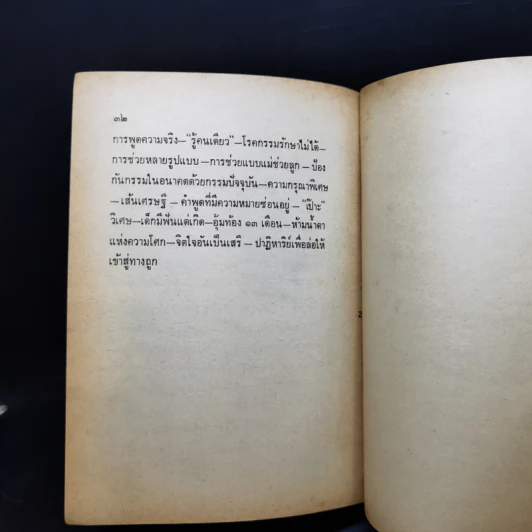 ๓๒
การพูดความจริง—"รู้คนเดียว"—โรคกรรมรักษาไม่ได้—
การช่วยหลายรูปแบบ—การช่วยแบบแม่ช่วยลูก — ป้อง
กันกรรมในอนาคตด้วยกรรมปัจจุบัน—ความกรุณาพิเศษ
—เส้นเศรษฐี — คำพูดที่มีความหมายซ่อนอยู่ — "เป๊าะ"
วิเศษ—เด็กมีฟันแต่เกิด—อุ้มท้อง ๑๓ เดือน—ห้ามน้ำตา
แห่งความโศก—จิตใจอันเป็นเสรี — ปาฏิหาริย์เพื่อล่อให้
เข้าสู่ทางถูก